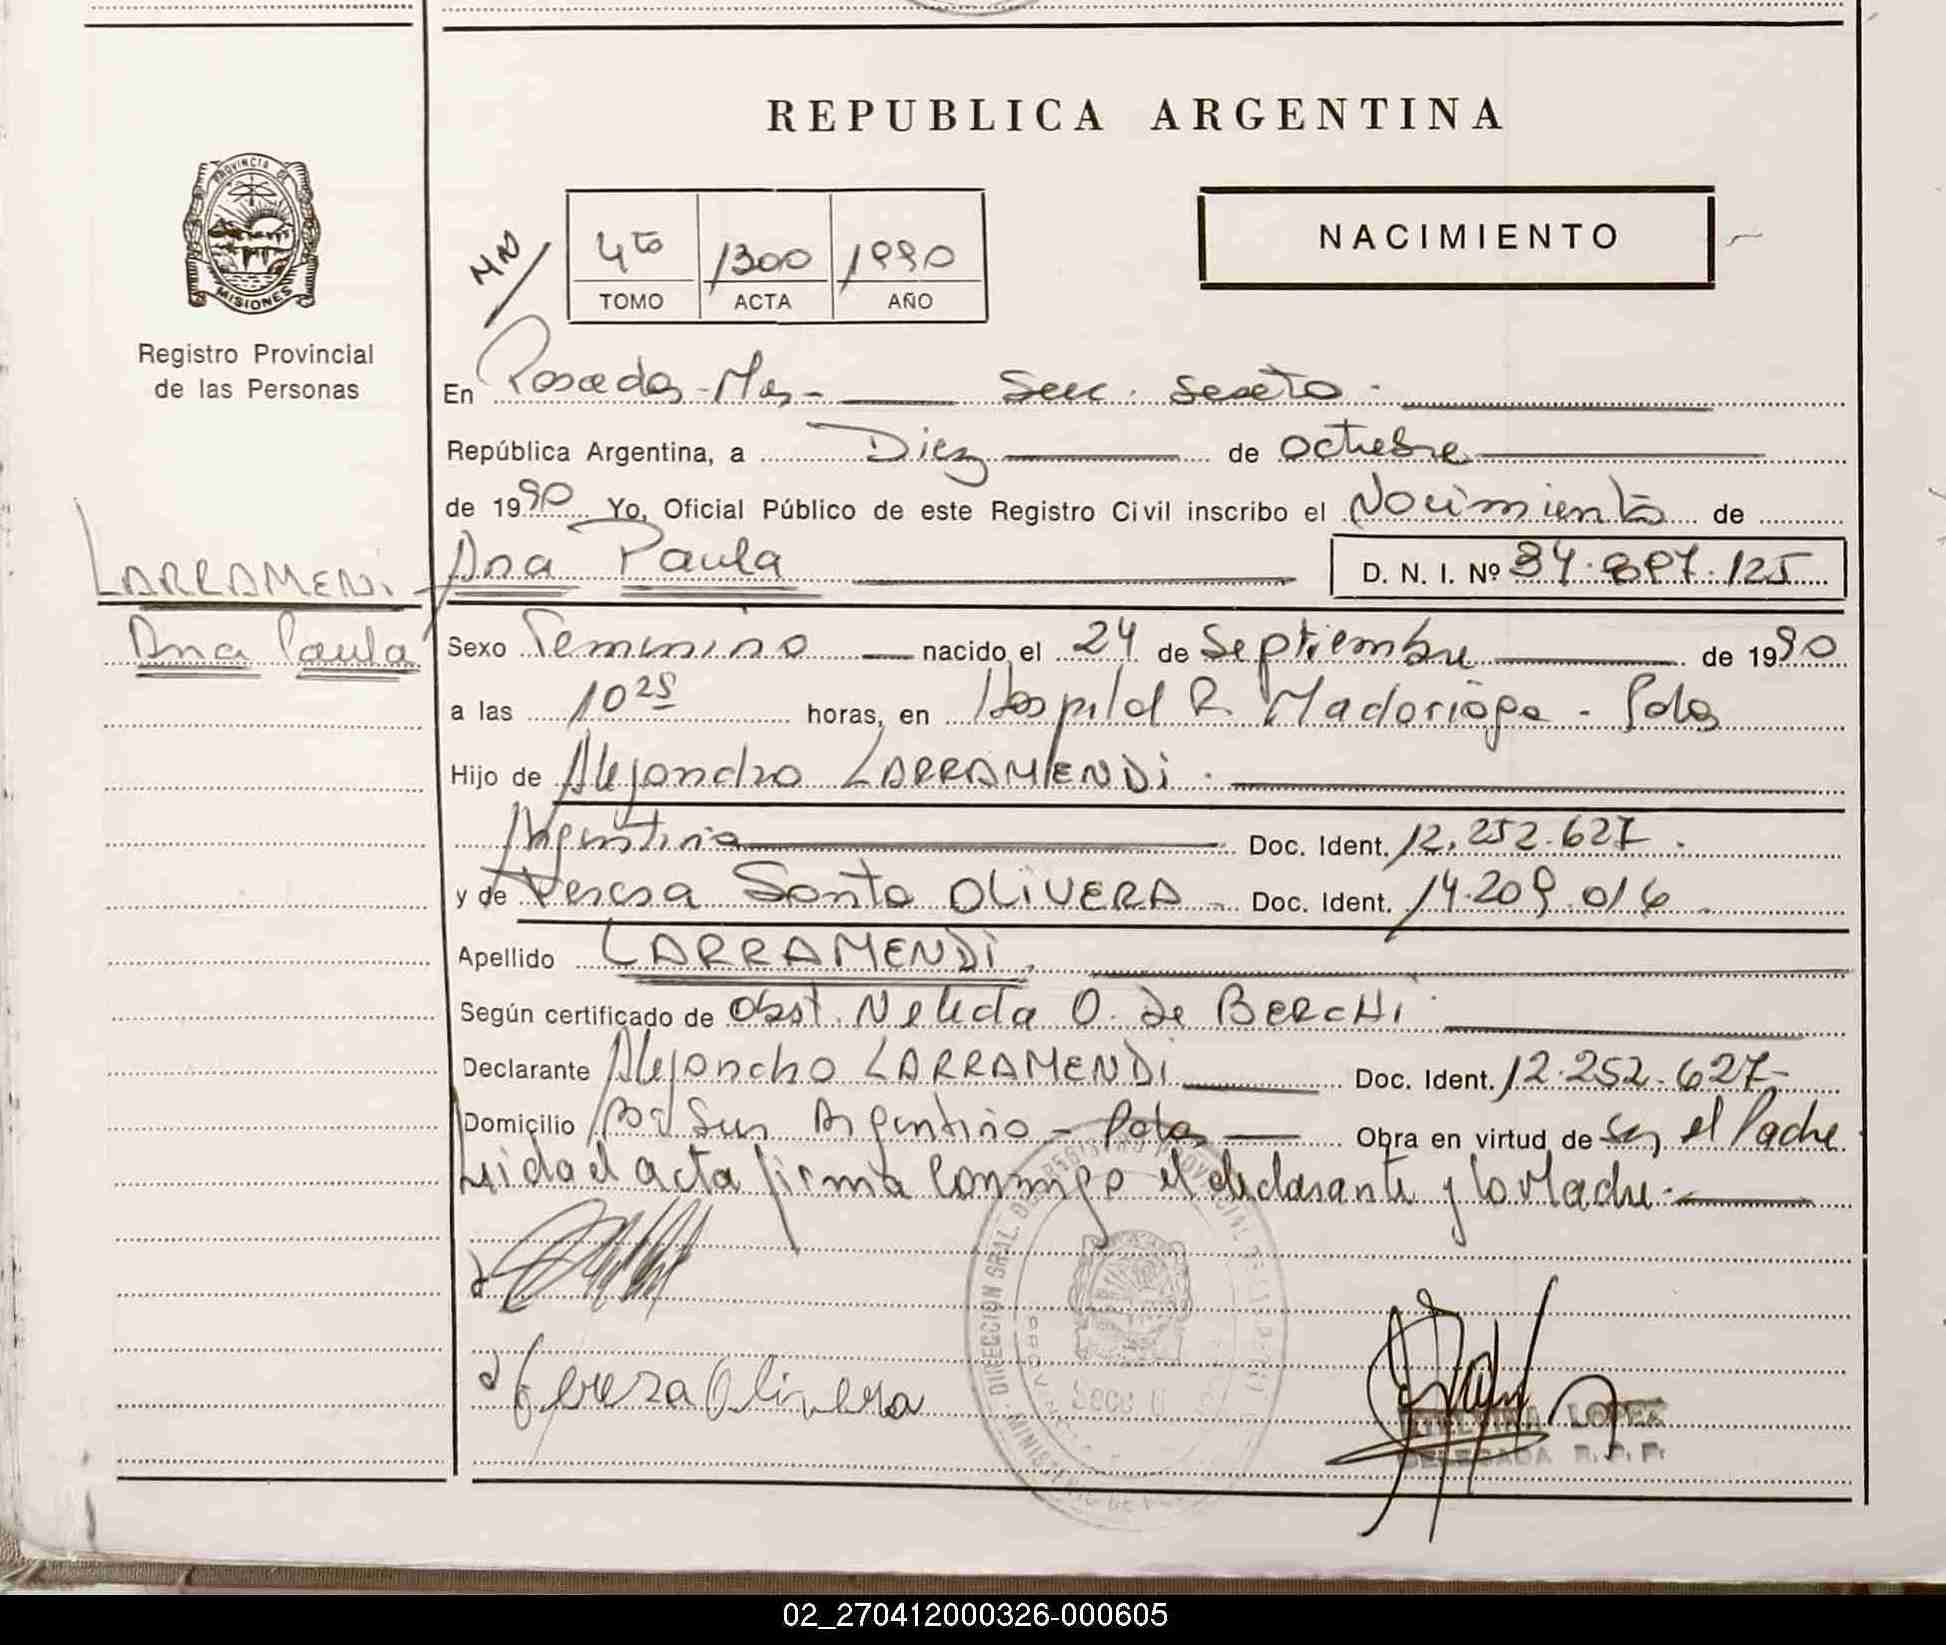 REPUBLICA ARGENTINA
PROVINCIA DE
MISIONES
Registro Provincial
de las Personas
4to 1300 1990
TOMO ACTA AÑO
NACIMIENTO
En Posadas-Mes- Secc. Sexta
República Argentina, a Diez de octubre
de 1990 Yo, Oficial Público de este Registro Civil inscribo el Nacimiento de
LARRAMENDI
Ana Paula
Ana Paula D. N. I. Nº 34.897.125
Sexo Femenino nacido el 24 de Septiembre de 1990
a las 10 25 horas, en Hospital R. Madariaga - Pdas
Hijo de Alejandro LARRAMENDI.
Argentina Doc. Ident. 12.252.627.
y de Teresa Santa OLIVERA Doc. Ident. 14.209.016
Apellido LARRAMENDI.
Según certificado de Obst. Nelida O. de BERCHI
Declarante Alejandro LARRAMENDI Doc. Ident. 12.252.627-
Domicilio Sur Argentino - Pdas Obra en virtud de ser el Padre.
Leida el acta firma conmigo el declarante y la Madre.
Tereza Olivera
DIRECCION GRAL. DE REGISTRO PROVINCIAL DE LAS PERSONAS
LOPEZ
DELEGADA R. P. P.
02_270412000326-000605